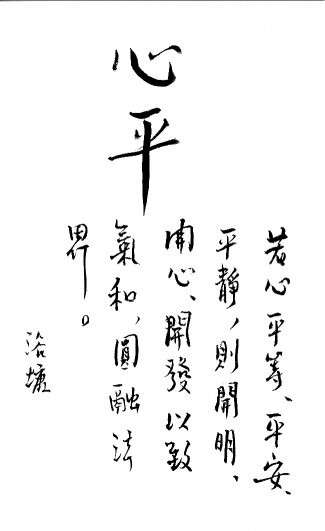 心平
若心平等、平安、
平靜，則開明、
開心、開發以致
氣和，圓融法
界。
浴墟